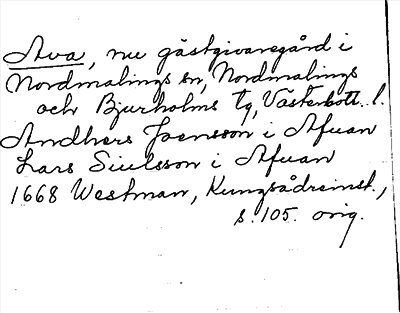 Ava, nu gästgivaregård i
Nordmalings sn, Nordmalings
och Bjurholms tg, Västerbott. l.
Andhers Joensson i Afuan
Lars Siulsson i Afuan
1668 Westman, Kungsådreinst.,
s. 105. orig.